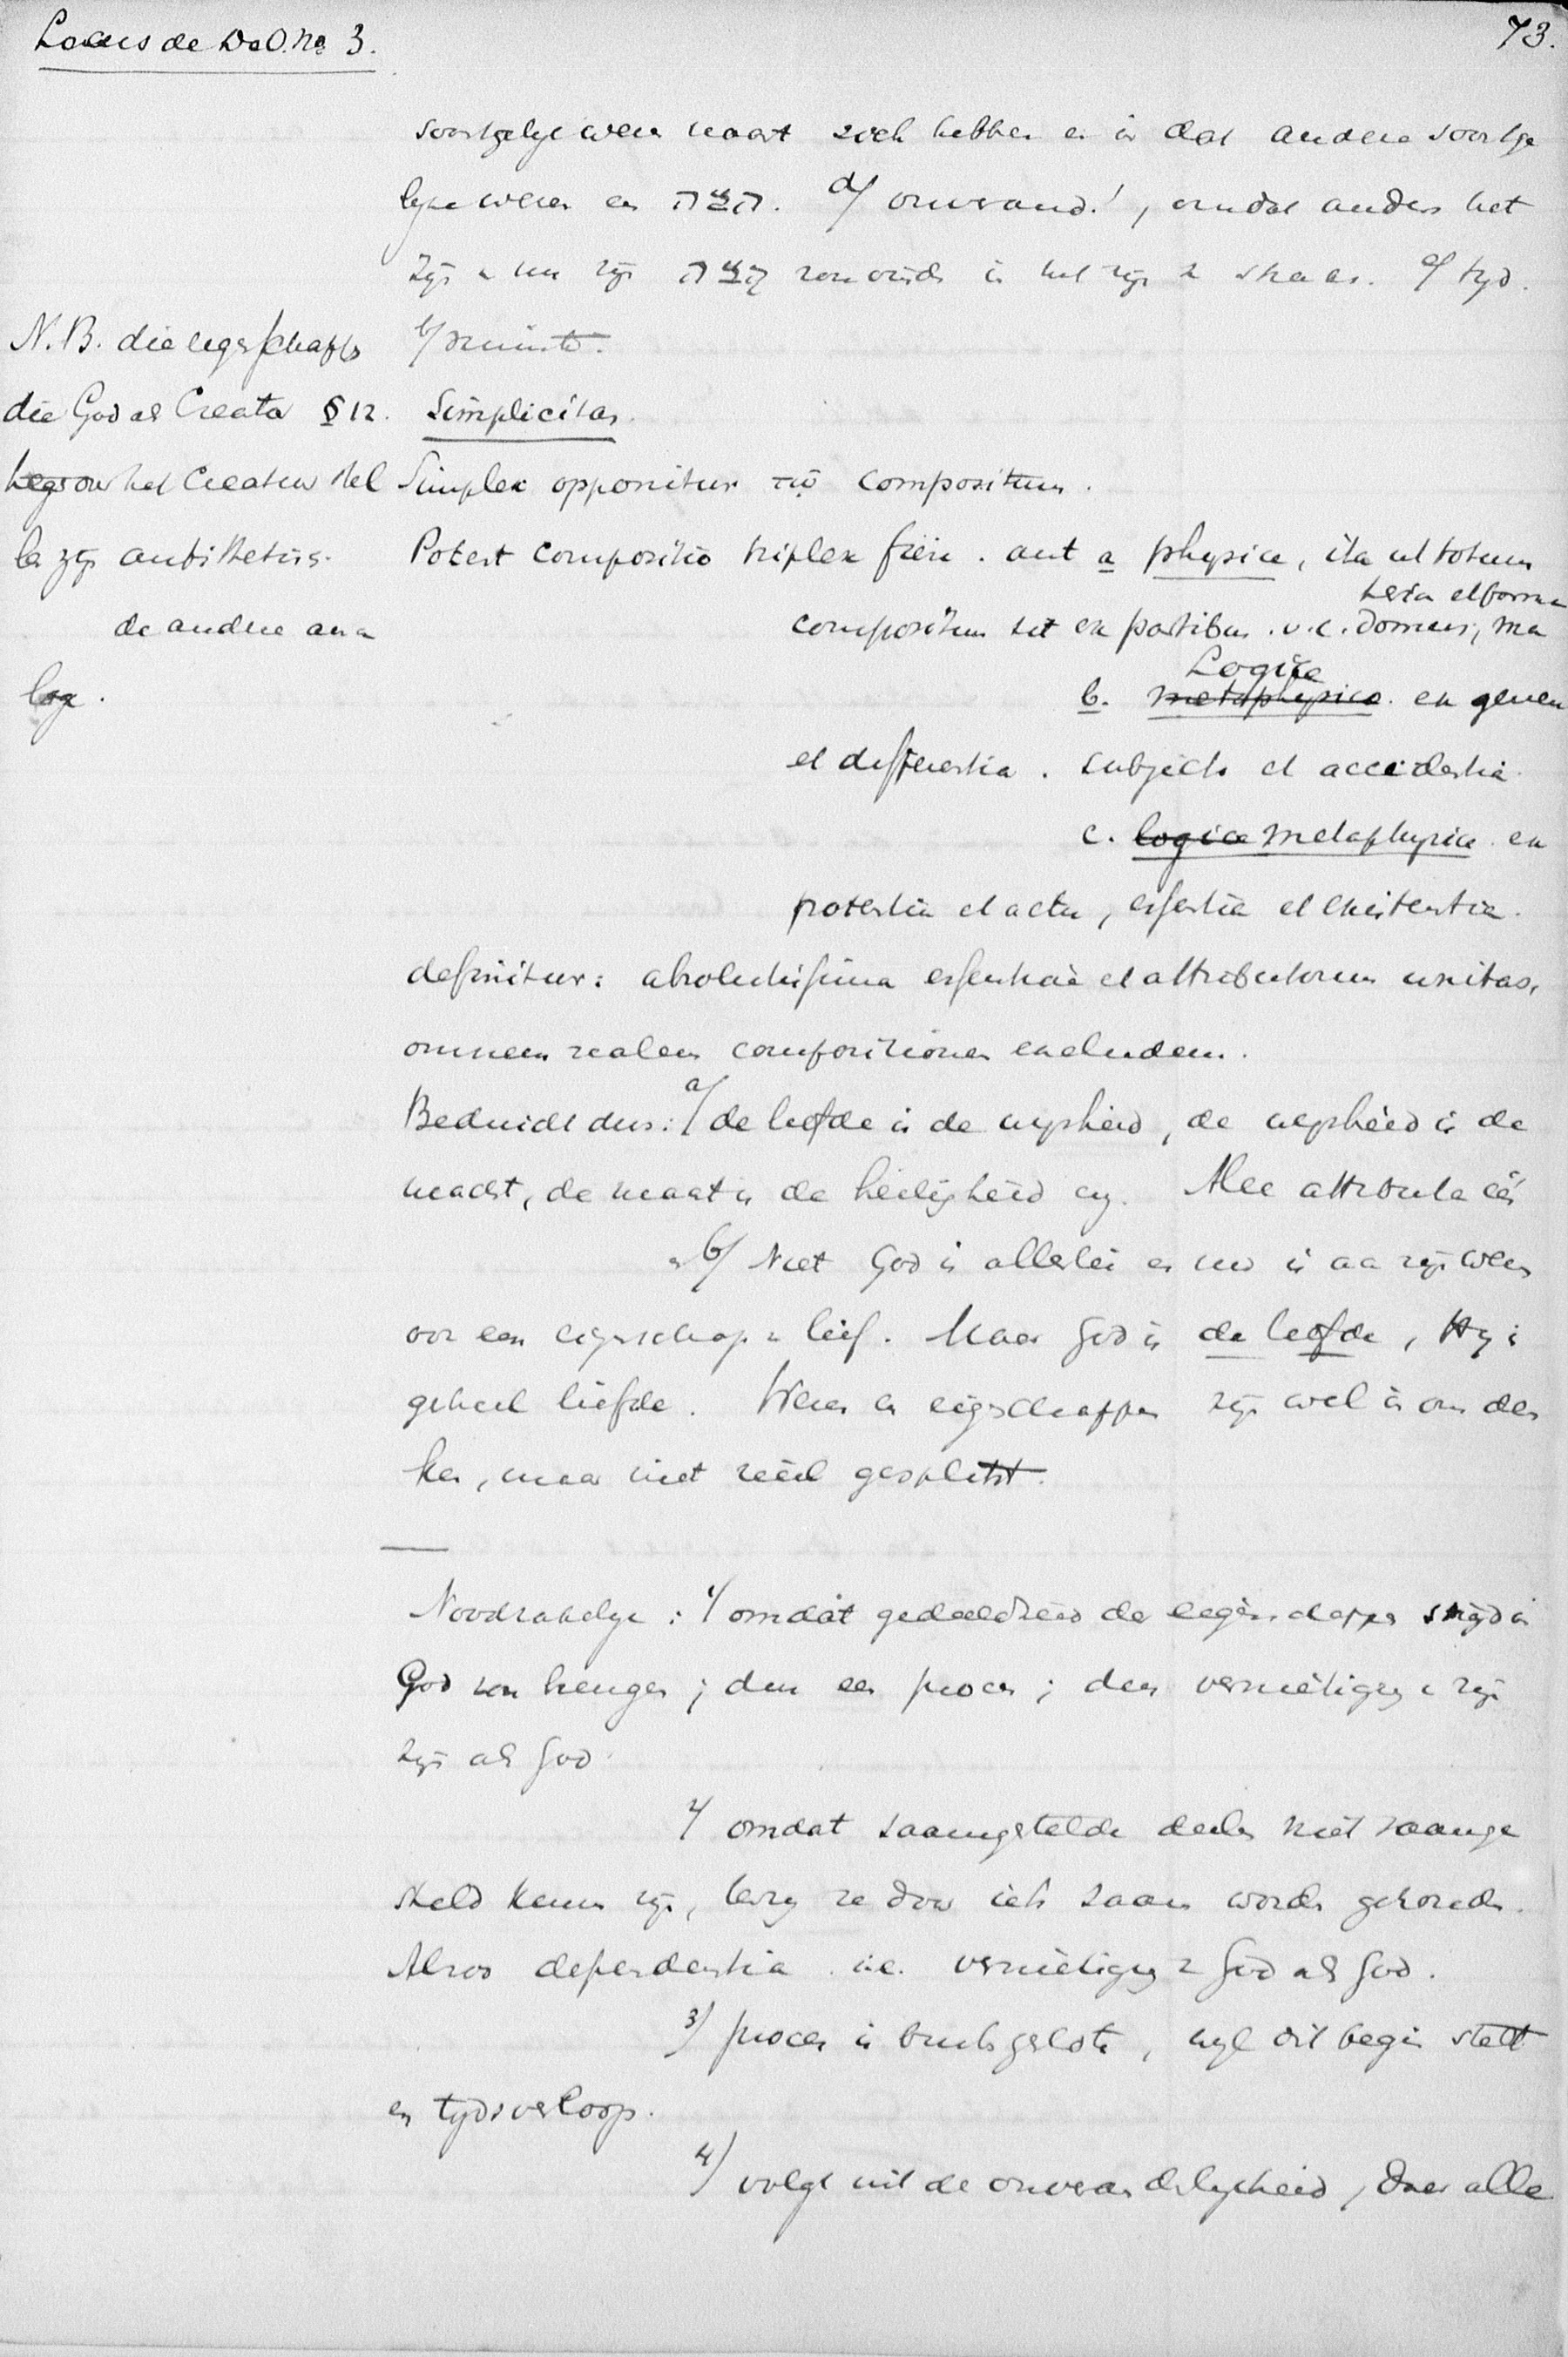 Locus de Deo. No 3.
73.
soortgelyke wezen naast zich hebben en in dat andere soortge
lyke wezen en היה. d/ onverand!, omdat anders het
zijn en niet zijn היה zou
zijn. e/ tyd.
f/ ruimte.
N.B. die eigschapp
die God als Creator
tegenov het Creatuur stel
le zijn antithetis.
de andere ana
log.
§ 12. Simplicitas.
Simplex opponitur τῷ compositum.
Potest compositio triplex fieri. aut a physice, ita ut totum
compositum sit ex partibus. v.c. domus, ma
teria et forma
b. metaphysice Logice ex genere
et differentia. subjecto et accidentia.
c. logice metaphysice ex
potentia et actu, essentia et existentia.
definitur: absolutissima essentiae et attributorum unitas,
omnem realem compositionem excludens.
Beduidt dus: a/ de liefde is de wysheid, de wysheid is de
macht, de macht is de heiligheid enz. Alle attributa één
b/ Niet God is allerlei en nu is aan zijn wezen
een eigenschap lief. Maar God is de liefde, Hy is
geheel liefde. Wezen en eigschappen zijn wel in ons den
ken, maar niet reëel gesplitst.
Noodzakelyk: 1/ omdat gedeeldheid der eigenschappen strijd in
God zou brengen; dus een proces; dus vernietiging zijn
zijn als God.
2/ omdat saamgestelde deelen niet saamge
steld kunnen zijn, tenzy ze door iets saam worden gehouden.
Alzoo dependentia. i.e. vernietiging v God als God.
3/ proces is buitengesloten, wyl dit begin stelt
en tydsverloop.
4/ volgt uit de onveranderlykheid, daar alle